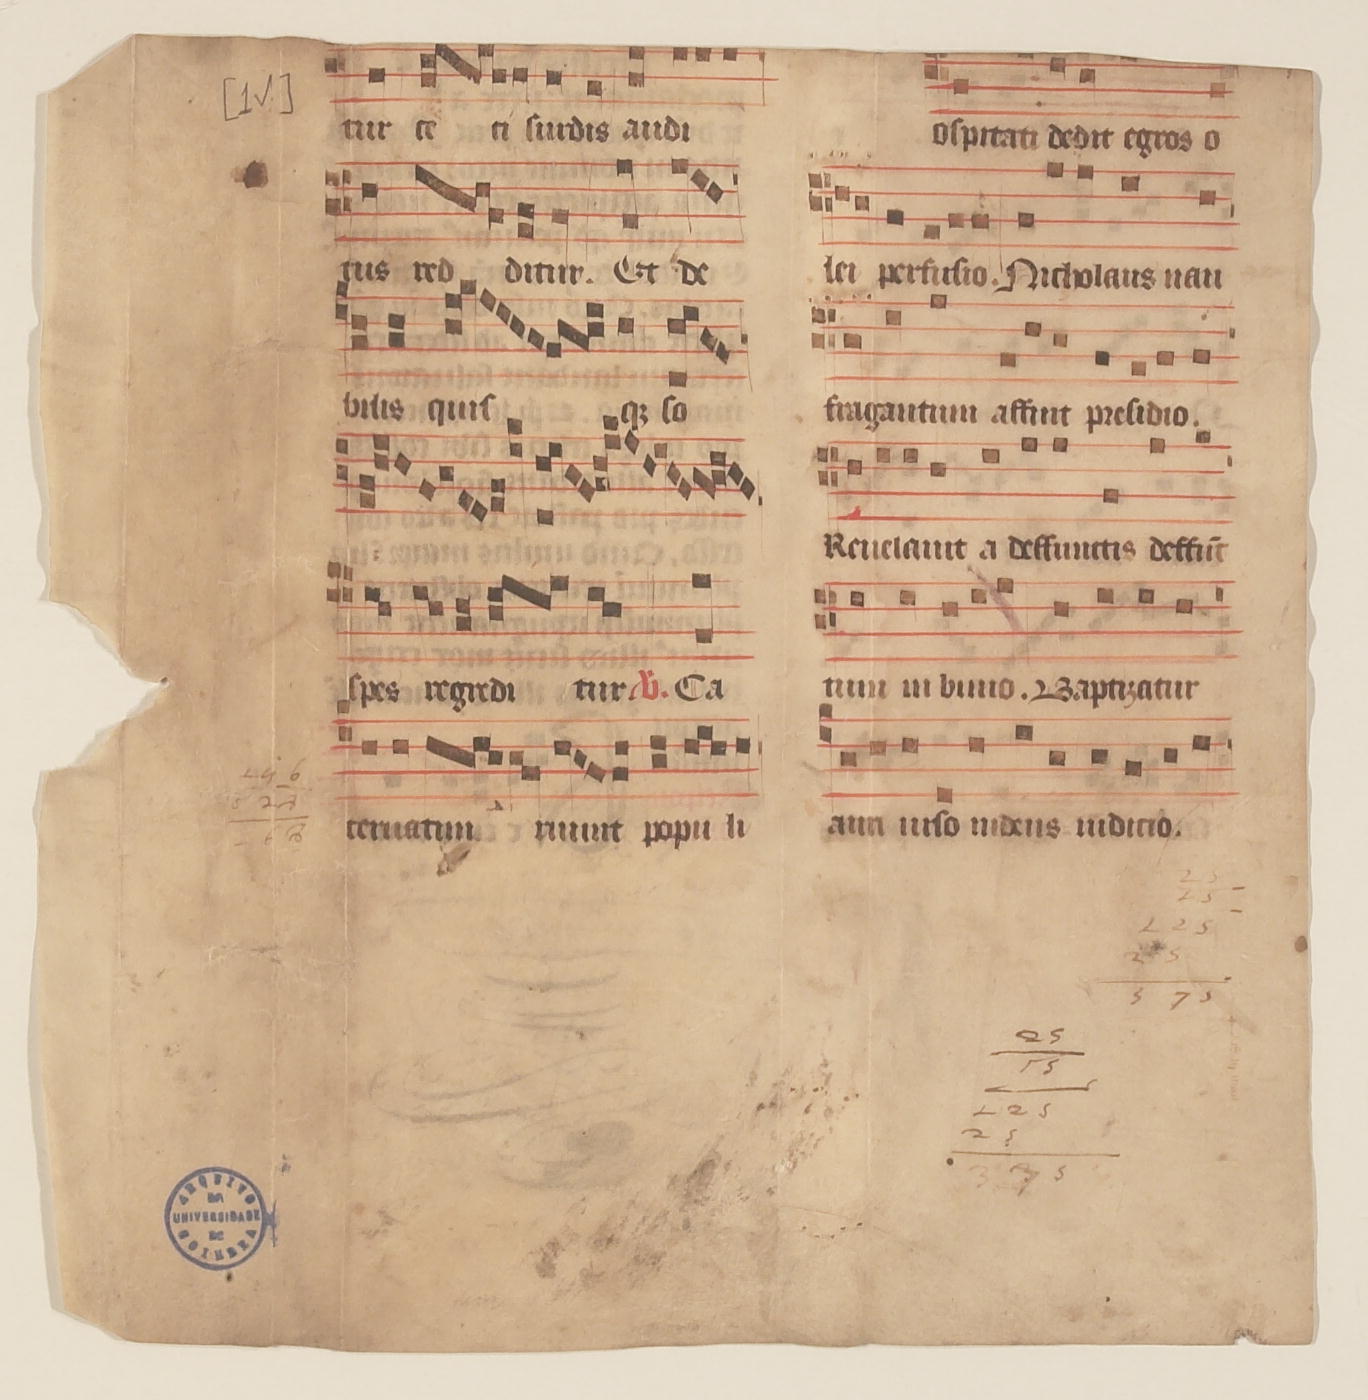 [1v.]
tur ce ci surdis audi
tus red ditur. Et de
bilis quis qz so
spes regredi tur. V. Ca
teruatim ruunt popu li
ospitati dedit egros o
lei perfusio. Nicholaus nau
fragantum affuit presidio.
Reueleuit a deffunctis deffūc
tum in biuio. Baptizatur
auri uiso iudeus iudicio.
25
125
25
375
25
15
125
25
375
ARQUIVO
DA
UNIVERSIDADE
DE
COIMBRA